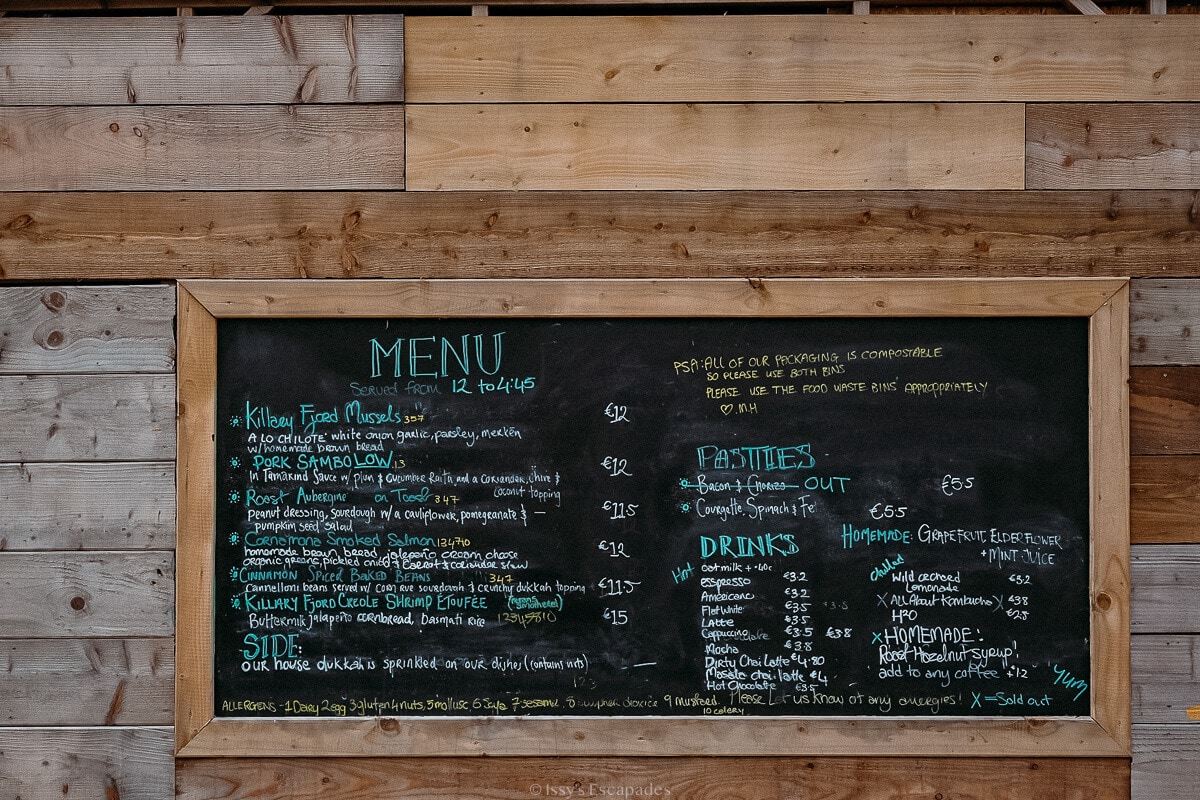 MENU
Served from 12 to 4:45
Killary Fjord Mussels 357 €12
A LO CHILOTE' white onion garlic, parsley, merkén
w/homemade brown bread
PORK SAMBO LOW 13 €12
In Tamarind Sauce w/ plum & cucumber Raita and a coriander, chive &
coconut topping
Roast Aubergine on Toast 347 €11.5
peanut dressing, sourdough w/ a cauliflower, pomegranate &
pumpkin seed salad
Connemara Smoked Salmon €12
homemade brown bread, jalapeño cream cheese
organic greens, pickled onion & carrot & coriander slaw
Cinnamon Spiced Baked Beans 347 €11.5
Cannelloni beans served w/ corn rye sourdough & crunchy dukkah topping
KILLARY FJORD CREOLE SHRIMP ETOUFÉE €15
Buttermilk jalapeño cornbread, basmati Rice
SIDE:
our house dukkah is sprinkled on our dishes (contains nuts)
PSA: ALL OF OUR PACKAGING IS COMPOSTABLE
SO PLEASE USE BOTH BINS
PLEASE USE THE FOOD WASTE BINS APPROPRIATELY
♡ M.H
PASTIES
Bacon & Chorizo OUT €5.5
Courgette, Spinach & Fe €5.5
DRINKS
Hot
oatmilk + .40c
espresso €3.2
Americano €3.2
Flat White €3.5
Latte €3.5
Cappuccino €3.5 €3.8
Mocha €3.8
Dirty Chai Latte €4.80
Masala chai latte €4
Hot Chocolate €3.5
HOMEMADE: GRAPEFRUIT, ELDERFLOWER
+ MINT JUICE
Chilled
Wild orchard €3.2
Lemonade
X All About Kombucha X €3.8
H2O
X HOMEMADE:
Roast Hazelnut syrup!
add to any coffee +1.2
yum
ALLERGENS - 1 Dairy 2 egg 3 gluten 4 nuts, 5 mollusc 6 Soya 7 sesame. 8 sulpher dioxide 9 mustard. Please Let us know of any allergies! X = Sold out
10 celery
© Issy's Escapades